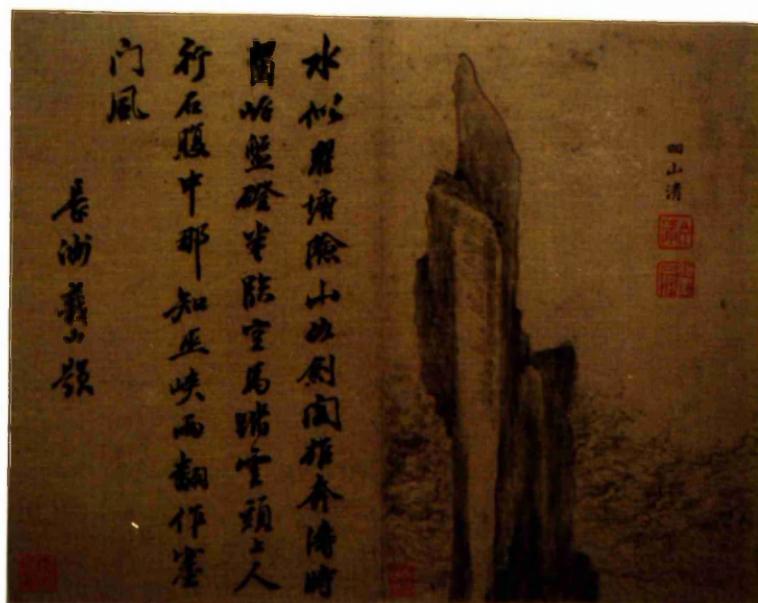 山清
水似瞿塘險山如劍閣雄奔濤時
岸盤磴半臨空馬踏雲頭上人
行石腹中那知巫峽雨翻作塞
门風
長洲義山題